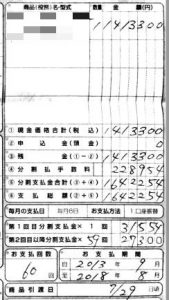 商品(役務)名・型式 数量 金額(円)
1 1413300
① 現金価格合計(税込) 1413300
② 申込金(頭金) 0
③ 残金(①-②) 1413300
④ 分割払手数料 228954
⑤ 分割支払金合計(③+④) 1642254
⑥ 支払総額(②+⑤) 1642254
毎月の支払日 毎月6日 お支払方法 1口座振替
第1回目分割支払金 × 1 31554
第2回目以降分割支払金 × 59回 27300
お支払回数 お支払期間
60回 自 2013年 9月
至 2018年 8月
商品引渡日 7/29 日